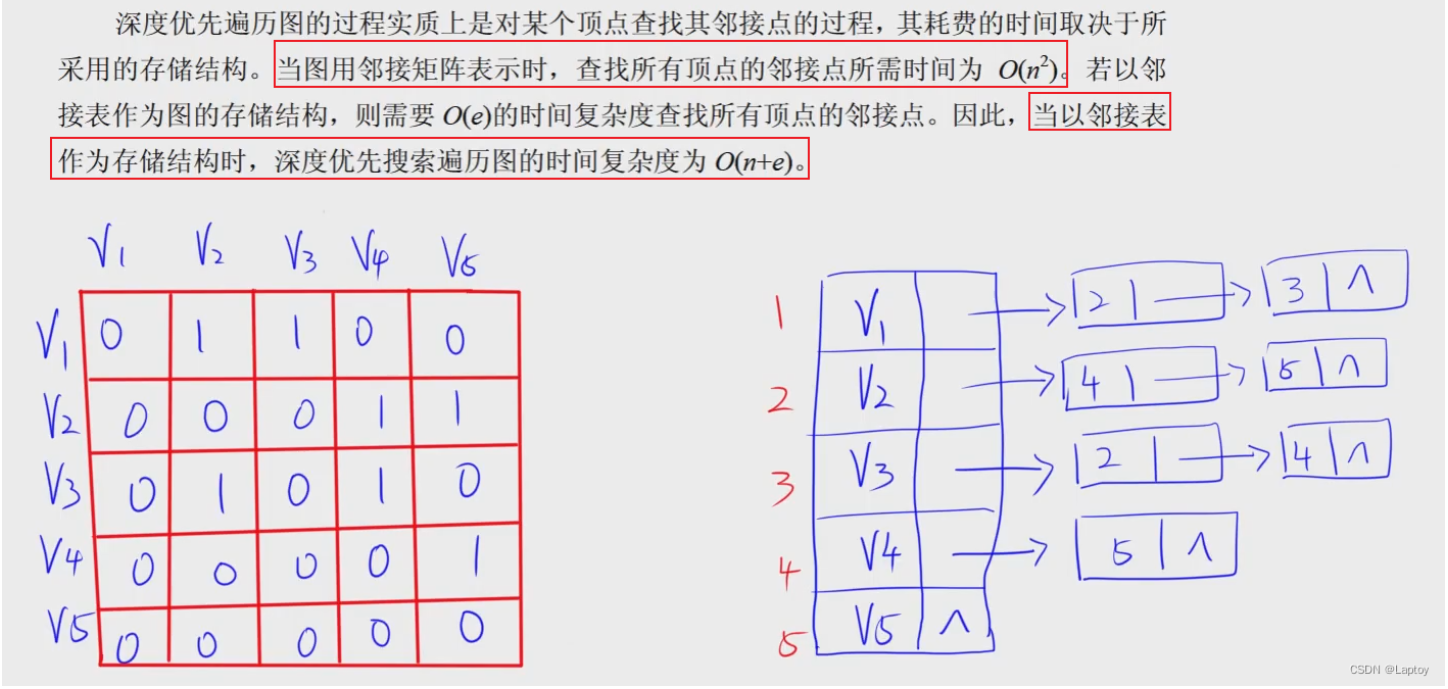 深度优先遍历图的过程实质上是对某个顶点查找其邻接点的过程,其耗费的时间取决于所
采用的存储结构。当图用邻接矩阵表示时,查找所有顶点的邻接点所需时间为 O(n²)。若以邻
接表作为图的存储结构,则需要 O(e)的时间复杂度查找所有顶点的邻接点。因此,当以邻接表
作为存储结构时,深度优先搜索遍历图的时间复杂度为 O(n+e)。
V1 V2 V3 V4 V5
V1 0 1 1 0 0
V2 0 0 0 1 1
V3 0 1 0 1 0
V4 0 0 0 0 1
V5 0 0 0 0 0
1 V1 → 2 → 3 ∧
2 V2 → 4 → 5 ∧
3 V3 → 2 → 4 ∧
4 V4 → 5 ∧
5 V5 ∧
CSDN @Laptoy